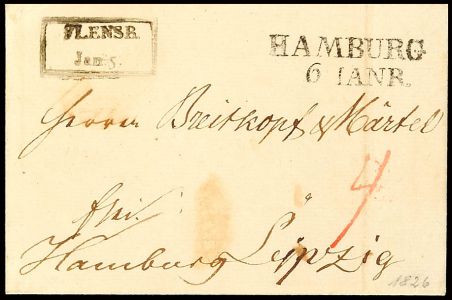 FLENSB.
Jan: 5.
HAMBURG
6 IANR.
Herren Breitkopf & Härtel
frei
Hamburg Leipzig
4
1826